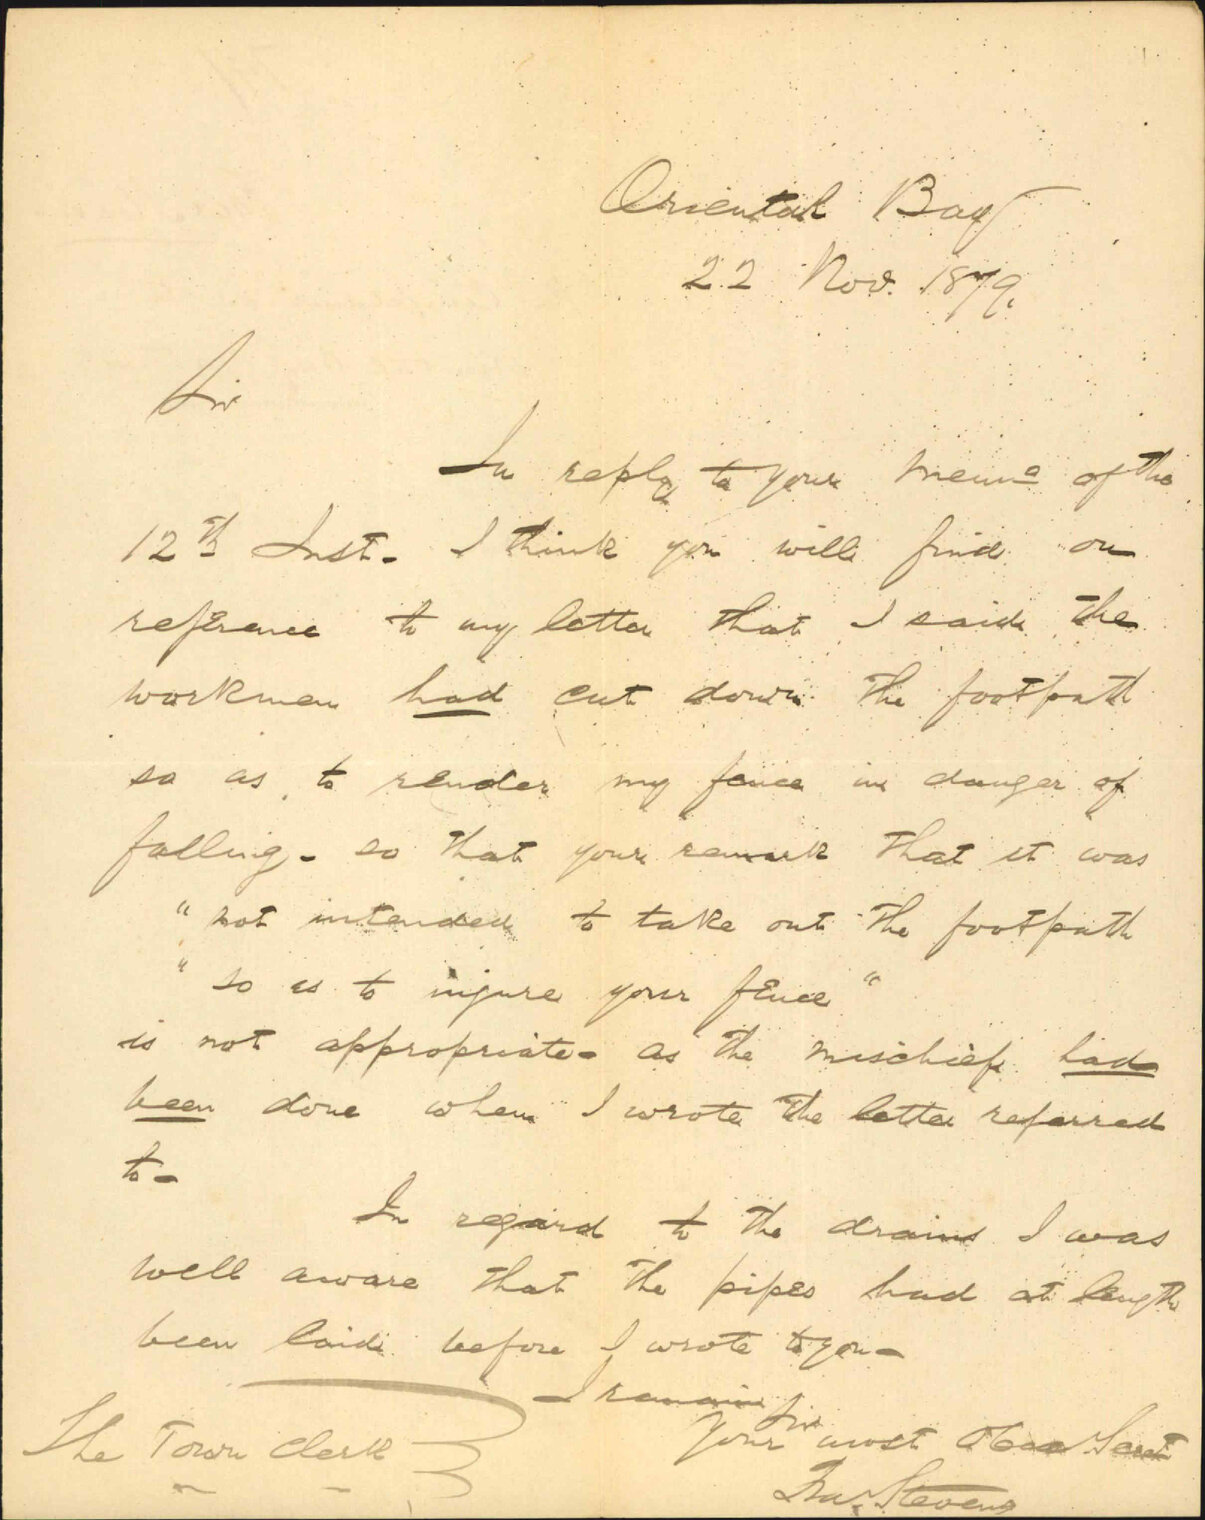 Oriental Bay
22 Nov. 1879.
Sir
In reply to your Memo of the
12th Inst. I think you will find on
reference to my letter that I said the
workmen had cut down the footpath
so as to render my fence in danger of
falling - so that your remark that it was
"not intended to take out the footpath
"so as to injure your fence"
is not appropriate - as the mischief had
been done when I wrote the letter referred
to -
In regard to the drains I was
well aware that the pipes had at length
been laid before I wrote to you -
I remain Sir
Your most Obed Servt
The Town Clerk
Stevens